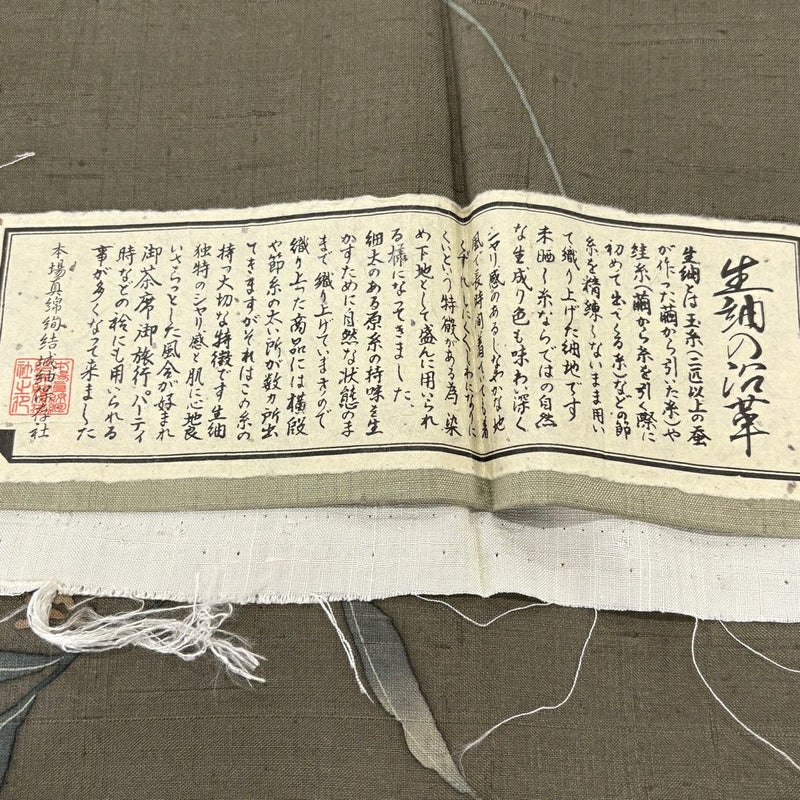 生紬の沿革
生紬とは玉糸(二匹以上の蚕
が作った繭から引いた糸)や
絓糸(繭から糸を引く際に
初めて出てくる糸)などの節
糸を精練しないまま用い
て織り上げた紬地です
未晒し糸ならではの自然
な生成り色も味わい深く
シャリ感のあるしなやかな地
風で長時間着ていても着
くずれしにくくしわになりに
くいという特徴がある為染
め下地として盛んに用いられ
る様になってきました
細太のある原糸の持味を生
かすために自然な状態のま
まで織り上げていますので
織り上った商品には横段
や節糸の太い所が数ヵ所出
てきますがそれはこの糸の
持つ大切な特徴です生紬
独特のシャリ感と肌に心地良
いさらっとした風合が好まれ
御茶席御旅行パーティ
時などの装にも用いられる
事が多くなって来ました
本場真綿絢結城紬保存社